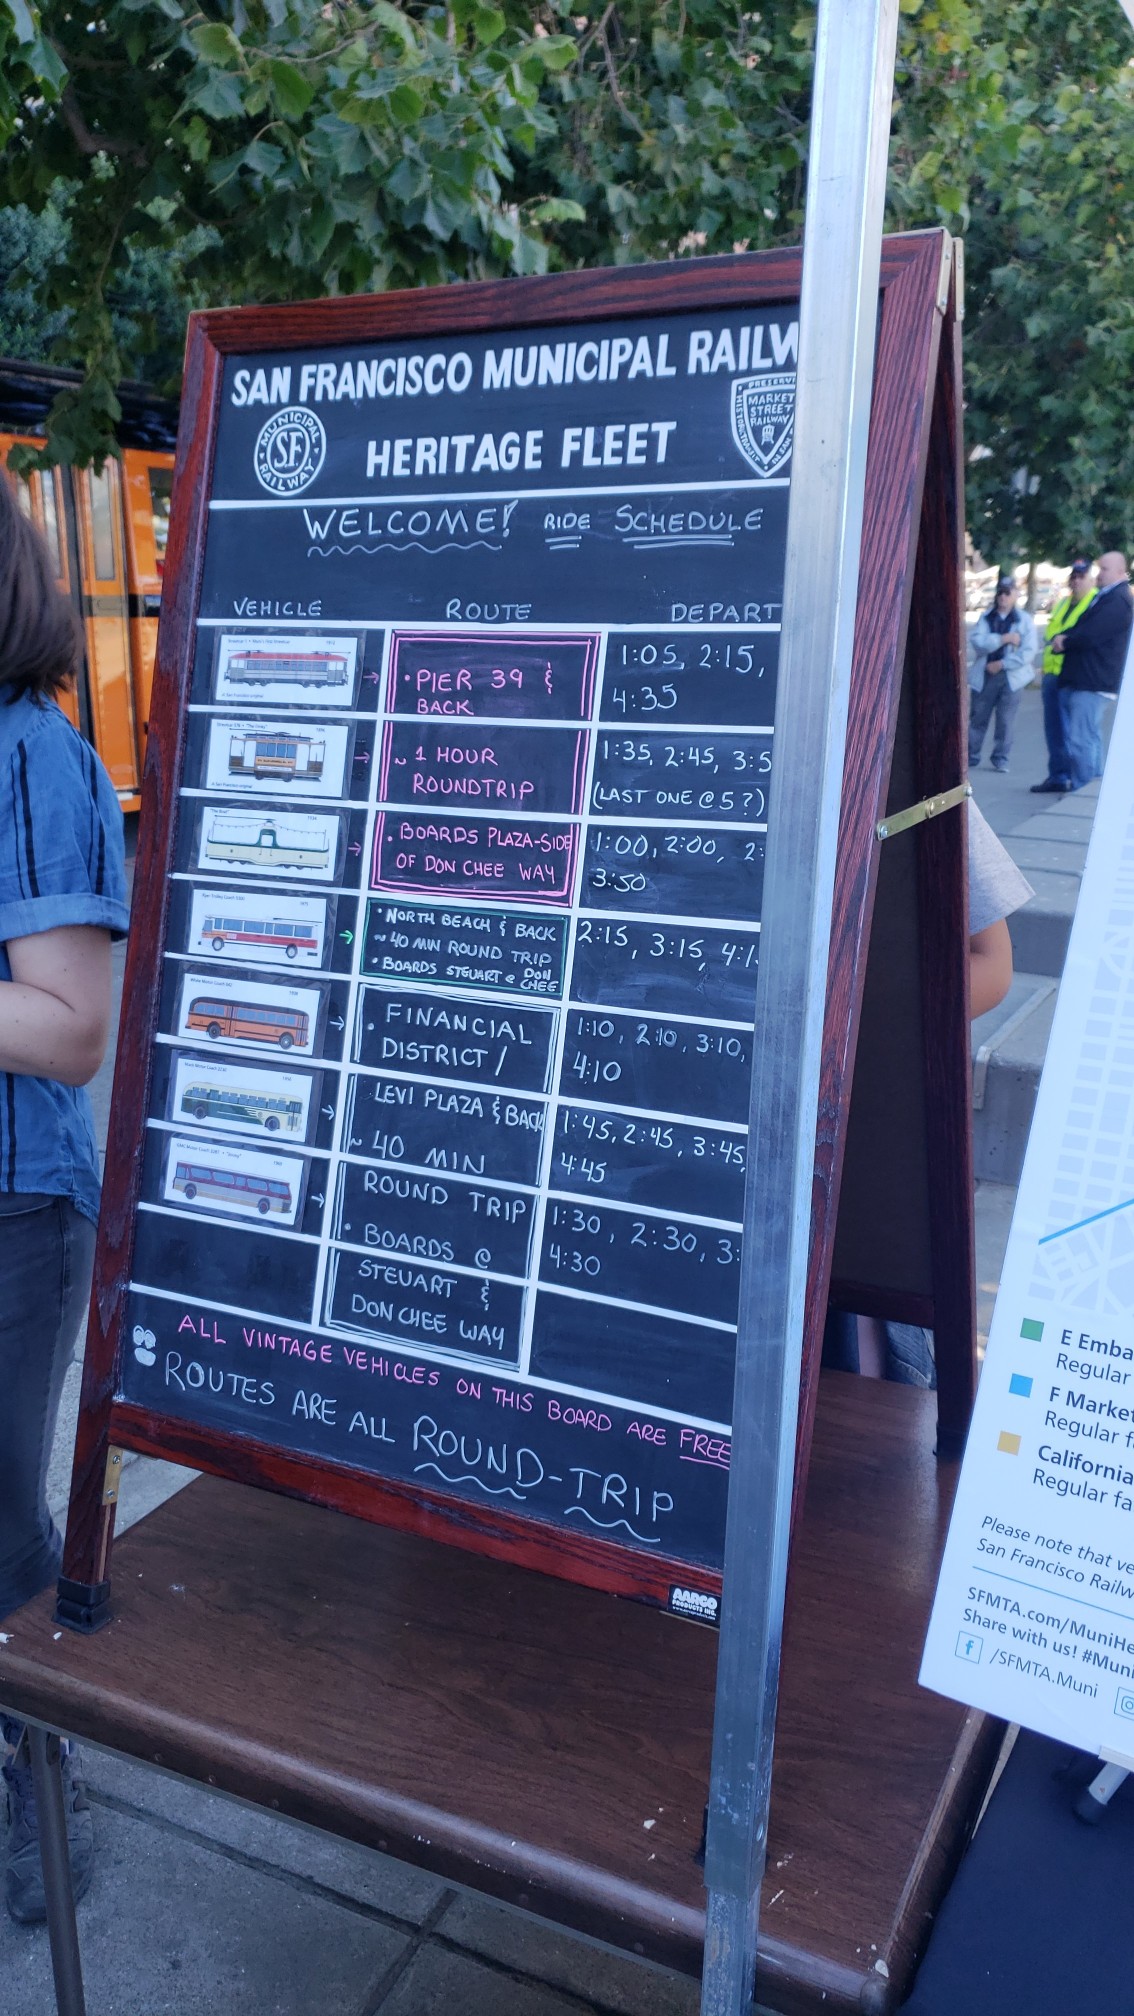 SAN FRANCISCO MUNICIPAL RAILW
MUNICIPAL
SF
RAILWAY
HERITAGE FLEET
MARKET
STREET
RAILWAY
WELCOME! RIDE SCHEDULE
VEHICLE ROUTE DEPART
• PIER 39 &
BACK
1:05, 2:15,
4:35
~ 1 HOUR
ROUNDTRIP
1:35, 2:45, 3:5
(LAST ONE @ 5?)
• BOARDS PLAZA-SIDE
OF DON CHEE WAY
1:00, 2:00, 2:
3:50
• NORTH BEACH & BACK
~ 40 MIN ROUND TRIP
• BOARDS STEUART @ DON
CHEE
2:15, 3:15, 4:1
• FINANCIAL
DISTRICT /
1:10, 2:10, 3:10,
4:10
LEVI PLAZA & BACK
~ 40 MIN
1:45, 2:45, 3:45,
4:45
ROUND TRIP
• BOARDS @
1:30, 2:30, 3:
4:30
STEUART &
DON CHEE WAY
ALL VINTAGE VEHICLES ON THIS BOARD ARE FREE
ROUTES ARE ALL ROUND-TRIP
AARCO
PRODUCTS INC.
E Emba
Regular
F Market
Regular f
California
Regular fa
Please note that ve
San Francisco Railw
SFMTA.com/MuniHe
Share with us! #Muni
f /SFMTA.Muni